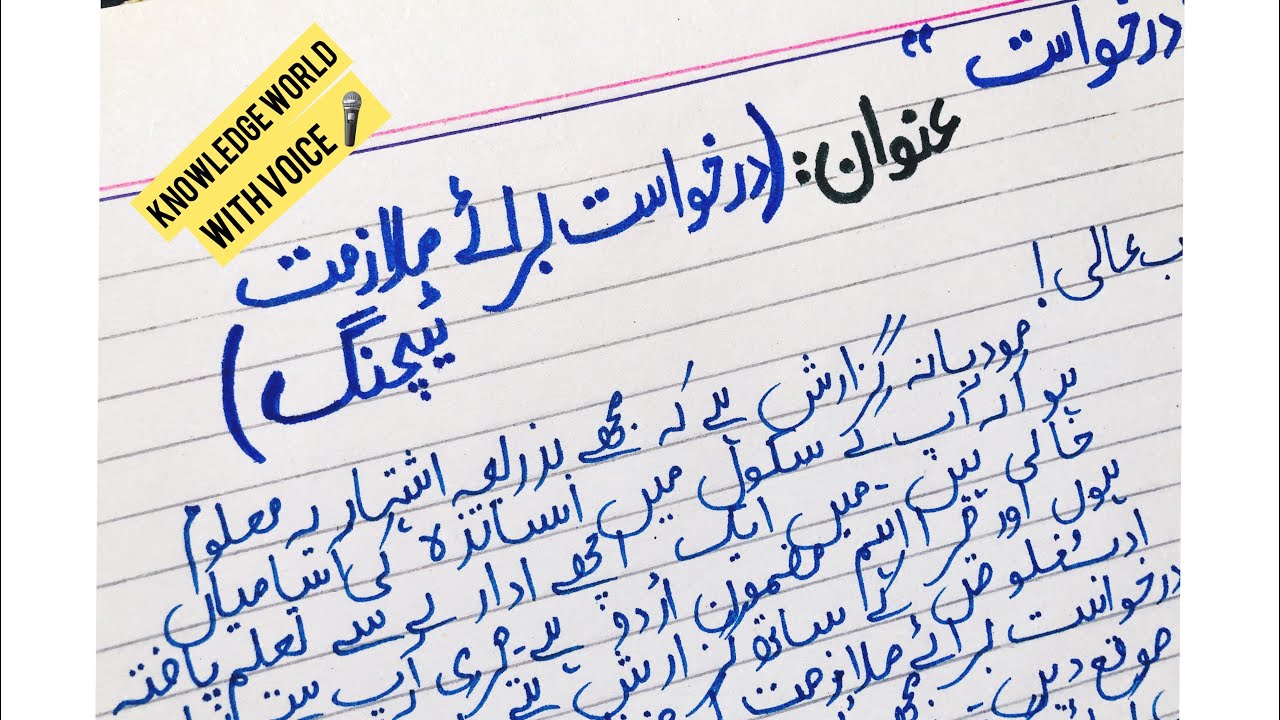 درخواست "
KNOWLEDGE WORLD
WITH VOICE
عنوان: (درخواست برائے ملازمت
ٹیچنگ)
ب عالی!
مودبانہ گزارش ہے کہ مجھے بذریعہ اشتہار یہ معلوم
ہوا کہ آپ کے سکول میں اساتذہ کی آسامیاں
خالی ہیں۔ میں ایک اچھے ادارے سے تعلم یافتہ
ہوں اور میرا اہم مضمون اردو ہے۔ میری آپ سے
ادب کے ساتھ گزارش ہے
درخواست برائے ملازمت
موقع دیں۔ مجھے